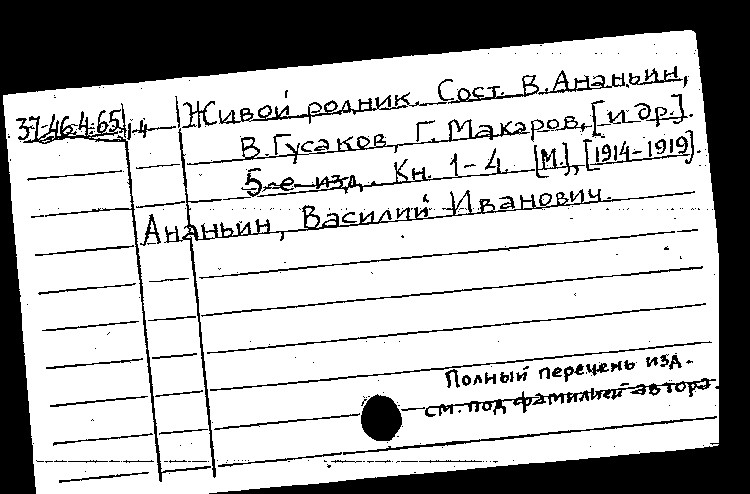 37-46.4.65 1-4 Живой родник. Сост. В. Ананьин,
В. Гусаков, Г. Макаров, [и др.].
5-е изд. Кн. 1-4. [М.], [1914-1919].
Ананьин, Василий Иванович.
Полный перечень изд.
см. под фамилией автора.